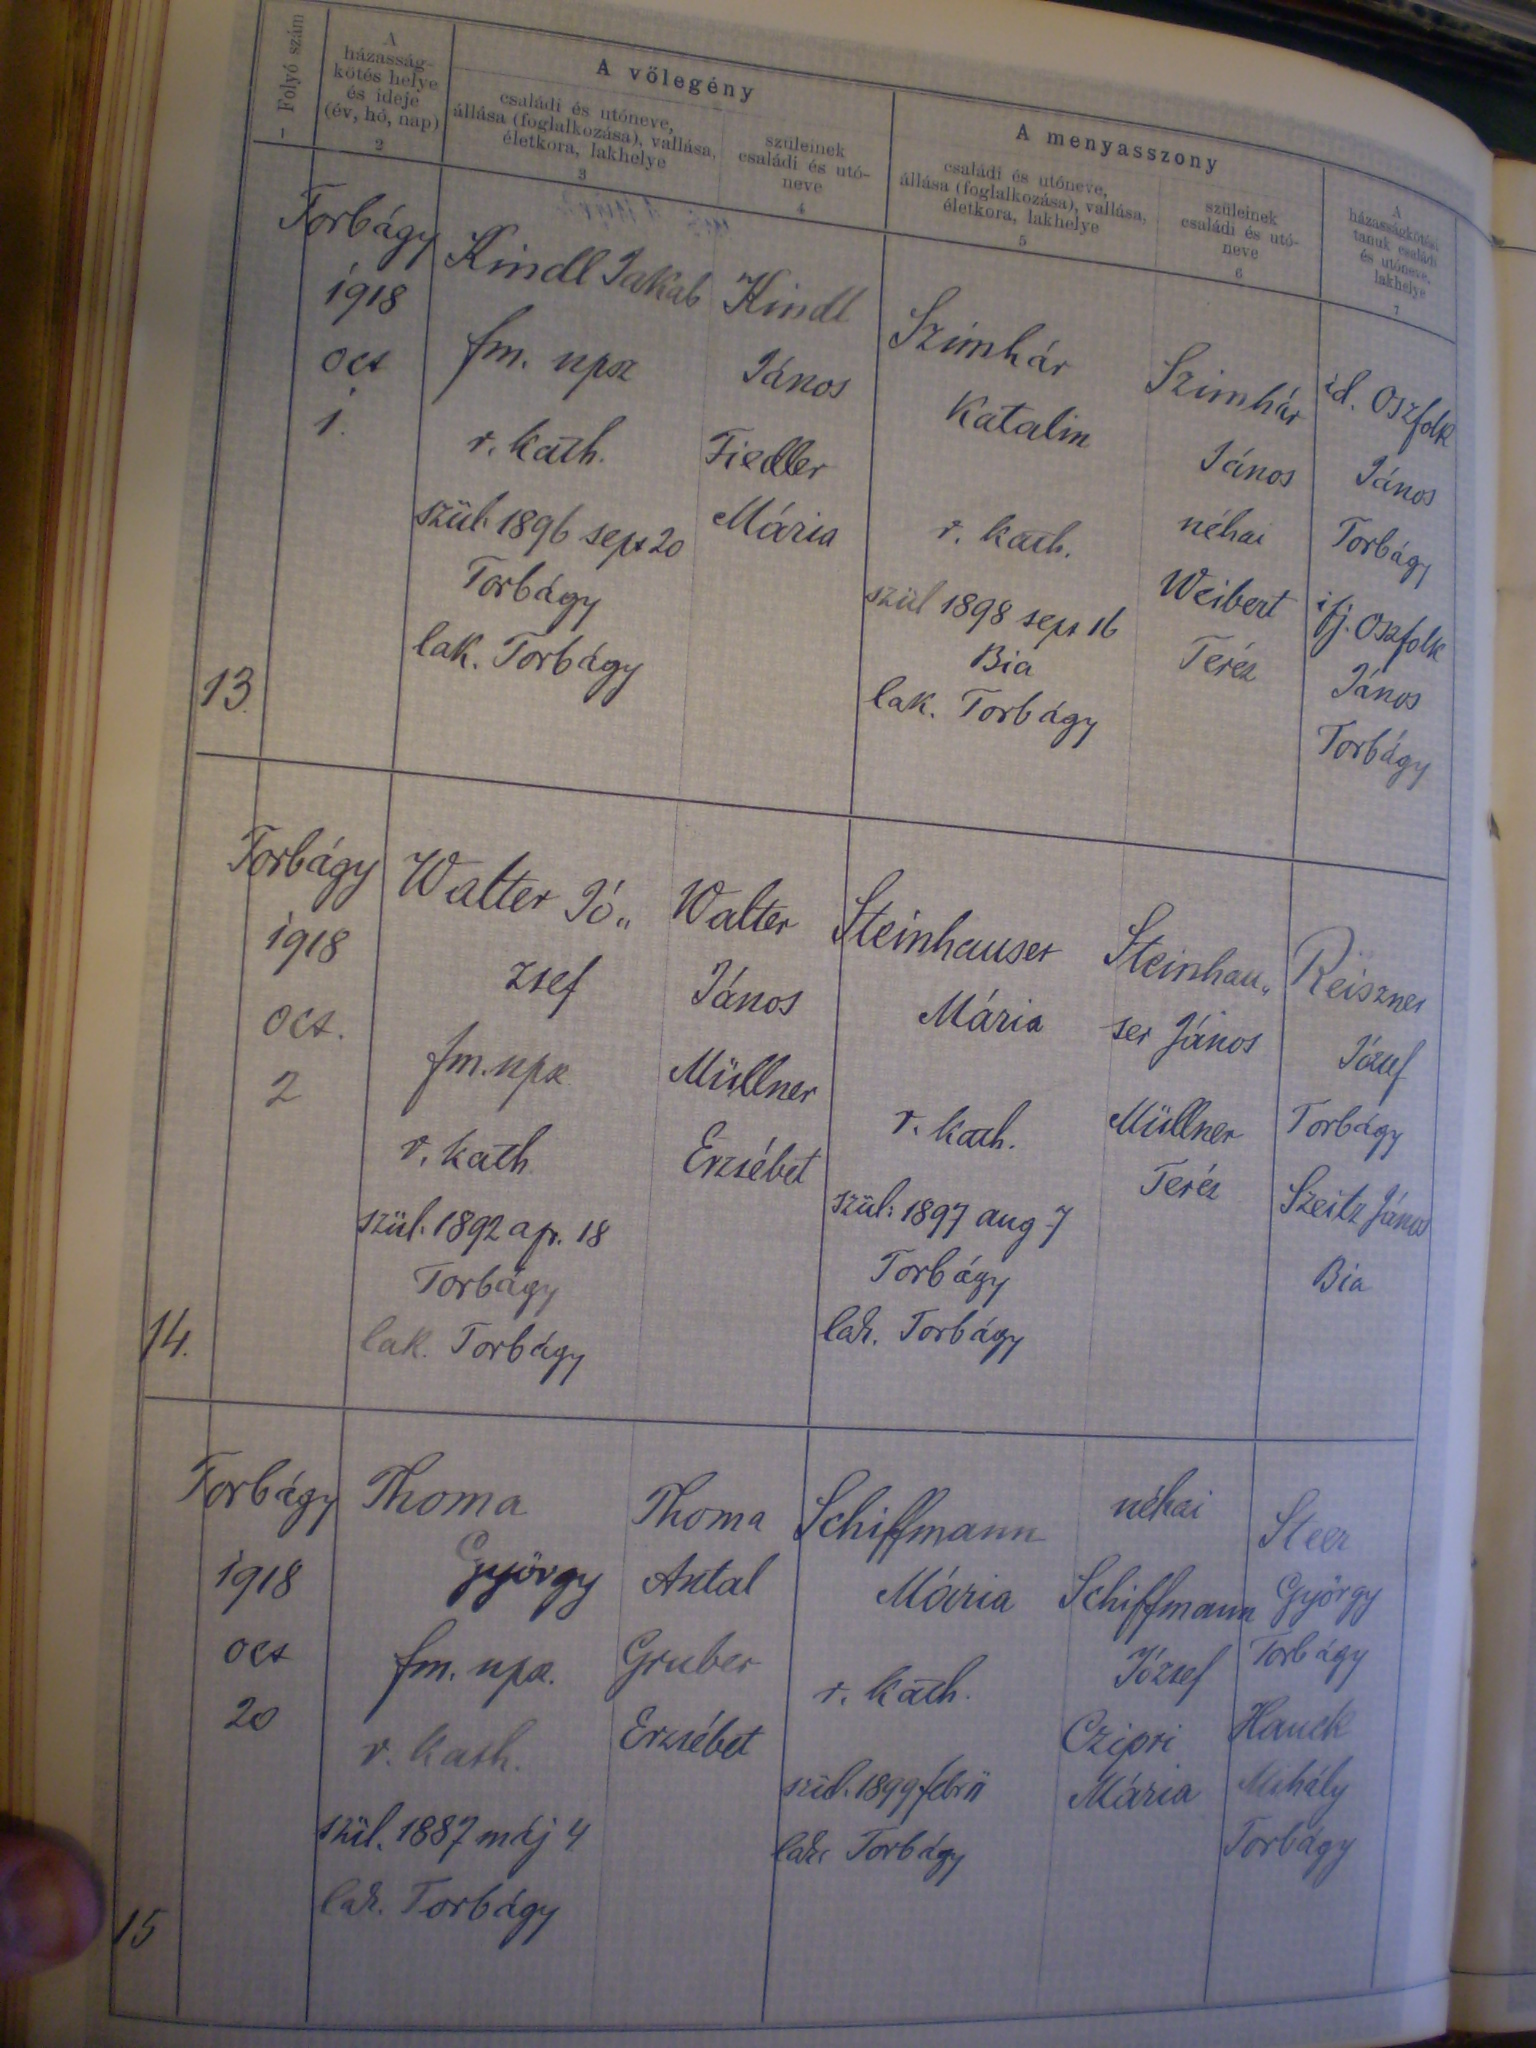 Folyó szám
1
A
házasság-
kötés helye
és ideje
(év, hó, nap)
2
A vőlegény
családi és utóneve,
állása (foglalkozása), vallása,
életkora, lakhelye
3
szüleinek
családi és utó-
neve
4
A menyasszony
családi és utóneve,
állása (foglalkozása), vallása,
életkora, lakhelye
5
szüleinek
családi és utó-
neve
6
A
házasságkötési
tanuk családi
és utóneve,
lakhelye
7
13.
Torbágy
1918
oct
1.
Kindl Jakab
fm. npsz
r. kath.
szül. 1896 sept 20
Torbágy
lak. Torbágy
Kindl
János
Fiedler
Mária
Szimhár
Katalin
r. kath.
szül 1898 sept 16
Bia
lak. Torbágy
Szimhár
János
néhai
Weibert
Teréz
id. Oszfolk
János
Torbágy
ifj. Oszfolk
János
Torbágy
14.
Torbágy
1918
oct.
2
Walter Jó„
zsef
fm. npsz
r. kath
szül. 1892 apr. 18
Torbágy
lak. Torbágy
Walter
János
Müllner
Erzsébet
Steinhauser
Mária
r. kath.
szül: 1897 aug 7
Torbágy
lak. Torbágy
Steinhau„
ser János
Müllner
Teréz
Reiszner
József
Torbágy
Szeitz János
Bia
15
Torbágy
1918
oct
20
Thoma
György
fm. npsz.
r. kath.
szül. 1887 máj 4
lak. Torbágy
Thoma
Antal
Gruber
Erzsébet
Schiffmann
Mária
r. kath.
szül. 1899 febr 11
lak. Torbágy
néhai
Schiffmann
József
Czipri
Mária
Steer
György
Torbágy
Hauck
Mihály
Torbágy